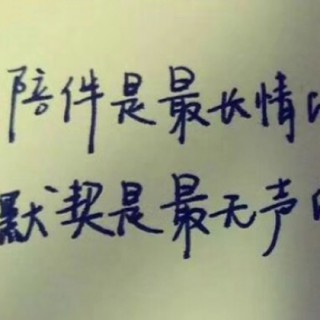 陪件是最长情
默契是最无声